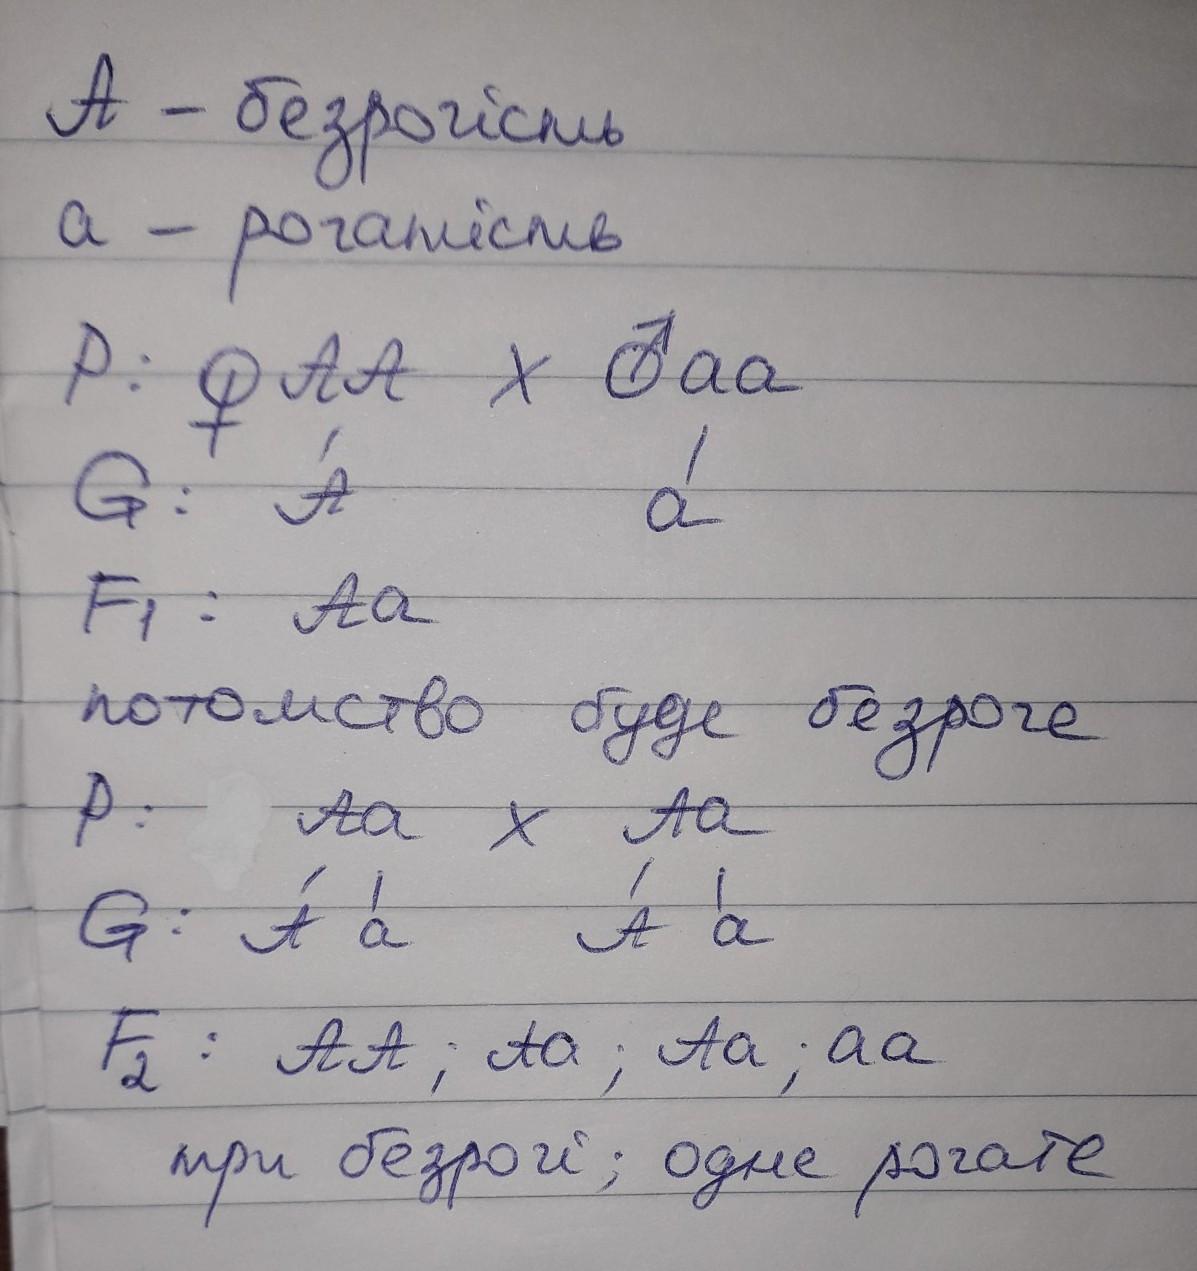 A – безрогість
a – рогатість
P: ♀ AA x ♂ aa
G: A a
F1: Aa
потомство буде безроге
P: Aa x Aa
G: A a A a
F2: AA; Aa; Aa; aa
три безрогі; одне рогате